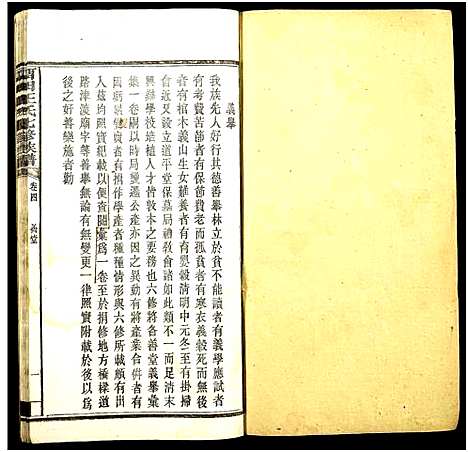 義舉
我族先人好行其德善舉林立於貧不能讀者有義學應試者
有考費苦節者有保節費老而孤貧者有寒衣義穀死而無後
者有掛木義山生女難養者有育嬰義穀清明中元冬至有掛掃
會近又設立道平堂保墓局禮敬會諸如此類不一而足清末
興辦學校培植人才尚皆敦本之要務也六修將各善堂義舉彙
集一卷刷以時局變遷公產亦因之異動有將產業合併者有
因
有捐作學產者種種情形與六修所載頗有出
入茲均照實紀載以便查閱彙為一卷至於捐修地方橋樑道
路津渡廟宇等善舉無論有無變更一律照實附載於後以為
後之好善樂施者勸
氏七修族譜
卷四
善堂
一